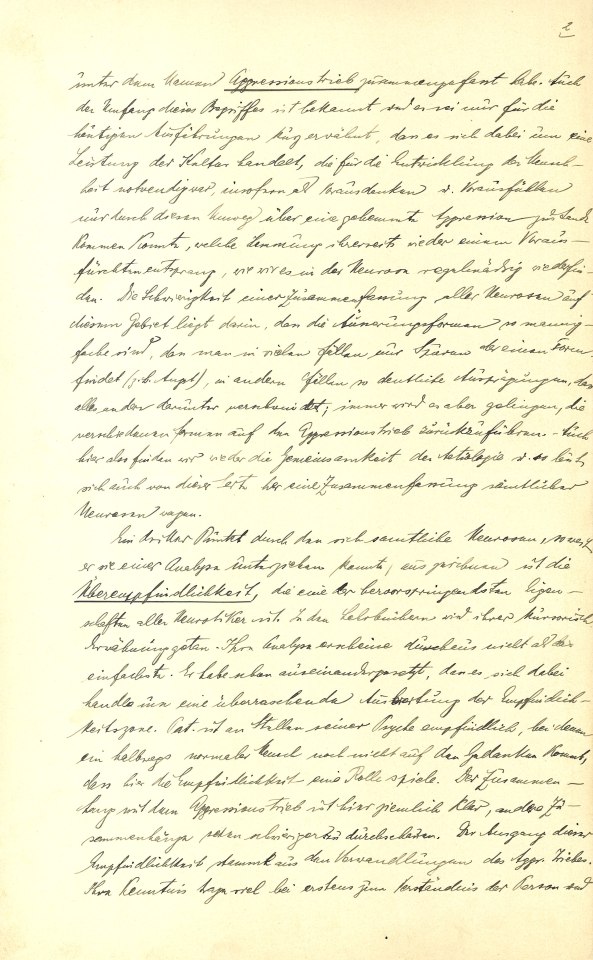 2
unter dem Namen Aggressionstrieb zusammengefasst habe. Auch
der Umfang dieses Begriffes ist bekannt und es sei nur für die
heutigen Ausführungen kurz erwähnt, dass es sich dabei um eine
Leistung der Kultur handelt, die für die Entwicklung der Mensch-
heit notwendig war, insofern als Vorausdenken u. Vorausfühlen
nur durch diesen Umweg über eine gehemmte Aggression zustande
kommen konnte, welche Hemmung ihrerseits wieder einem Voraus-
fürchten entsprang, wie wir es in der Neurose regelmässig wiederfin-
den. Die Schwierigkeit einer Zusammenfassung aller Neurosen auf
diesem Gebiet liegt darin, dass die Äusserungsformen so mannig-
fache sind, dass man in vielen Fällen nur Spuren der einen Form
findet (z.b. Angst), in andern Fällen so deutliche Ausprägungen, dass
alles andere darunter verschwindet; immer wird es aber gelingen, die
verschiedenen Formen auf den Aggressionstrieb zurückzuführen. Auch
hier also finden wir wieder die Gemeinsamkeit der Aetiologie u. es lässt
sich auch von dieser Seite her eine Zusammenfassung sämtlicher
Neurosen wagen.
Ein dritter Punkt durch den sich sämtliche Neurosen, soweit
er sie einer Analyse unterziehen konnte, auszeichnen ist die
Überempfindlichkeit, die eine der hervorspringendsten Eigen-
schaften aller Neurotiker ist. In den Lehrbüchern wird ihrer kursorisch
Erwähnung getan. Ihre Analyse erscheine durchaus nicht als das
einfachste. Er habe schon auseinandergesetzt, dass es sich dabei
handle um eine überraschende Auswertung der Empfindlich-
keitszone. Pat. ist an Stellen seiner Psyche empfindlich, bei denen
ein halbwegs normaler Mensch noch nicht auf den Gedanken kommt,
dass hier die Empfindlichkeit eine Rolle spiele. Der Zusammen-
hang mit dem Aggressionstrieb ist hier ziemlich klar, andere Zu-
sammenhänge seien schwieriger zu durchschauen. Der Ausgang dieser
Empfindlichkeit stammt aus den Verwandlungen des Aggr. Triebes.
Ihre Kenntnis trage viel bei erstens zum Verständnis der Person und